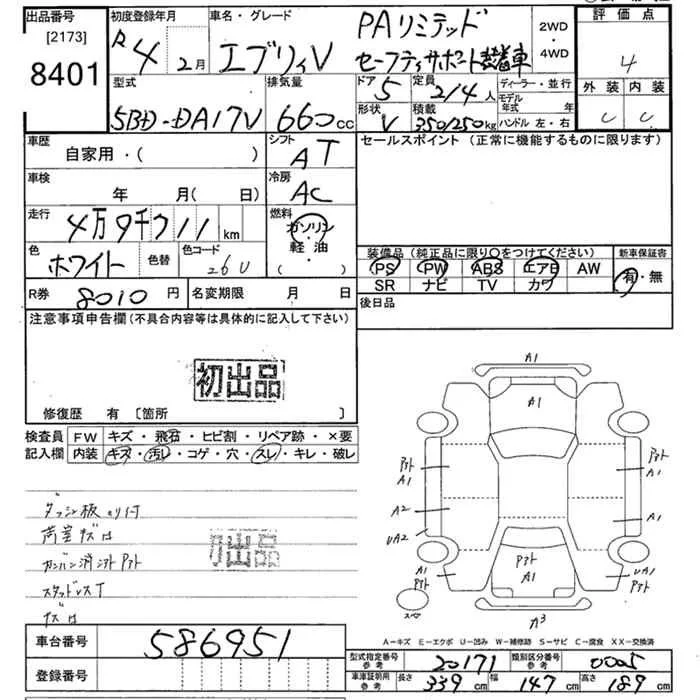 出品番号
[2173]
8401
初度登録年月
R4 2月
車名・グレード
エブリィV
PAリミテッド
セーフティサポート装着車
2WD
・
4WD
評価点
4
外装 内装
C C
型式
5BD-DA17V
排気量
660cc
ドア
5
定員
2/4人
形状
V
積載
350/250kg
ディーラー・並行
モデル年式 年
ハンドル 左・右
車歴
自家用・( )
シフト
AT
車検
年 月( 日)
冷房
AC
走行
4万9千711km
燃料
ガソリン
軽・油
( )
色
ホワイト
色替
色コード
26U
R券 8010円
名変期限 月 日
セールスポイント (正常に機能するものに限ります)
装備品 (純正品に限り○をつけてください)
PS PW ABS エアB AW
SR ナビ TV カワ
新車保証書
有・無
後日品
注意事項申告欄 (不具合内容等は具体的に記入して下さい)
初出品
修復歴 有 〔箇所 〕
検査員記入欄
FW キズ・飛石・ヒビ割・リペア跡・×要
内装 キズ・汚レ・コゲ・穴・スレ・キレ・破レ
ダッシュ板
荷室キズ
初出品
スタッドレス
A1
A1
A1
A1
A2
UA2
A1
A1
A1
A1
UA1
スペア
A-キズ E-エクボ U-凹み W-補修跡 S-サビ C-腐食 XX-交換済
車台番号
586951
登録番号
型式指定番号
参考
20171
類別区分番号
参考
0005
車庫証明用
参考
長さ 339cm
幅 147cm
高さ 189cm